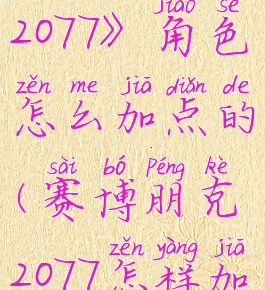 jiǎo sè
2077》角色
zěn me jiā diǎn de
怎么加点的
sài bó Péng kè
(赛博朋克
zěn yàng jiā
2077怎样加